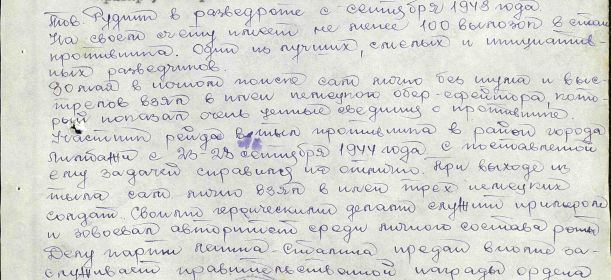 тов Рудит в разведроте с сентября 1943 года.
На своем счету имеет не менее 100 вылозок в стан
противника. Один из лучших, смелых и инициатив
ных разведчиков.
30 мая в ночном поиске сам лично без шума и выс
трелов взял в плен немецкого обер-ефрейтора, кото
рый показал очень ценные сведения о противнике.
Участник рейда в тыл противника в район города
с 23-28 сентября 1944 года с поставленной
ему задачей справился на отлично. При выходе из
тыла сам лично взял в плен трех немецких
солдат. Своими героическими делами служит примером
и завоевал авторитет среди личного состава роты
Делу партии Ленина-Сталина предан вполне за-
служивает правительственной награды ордена